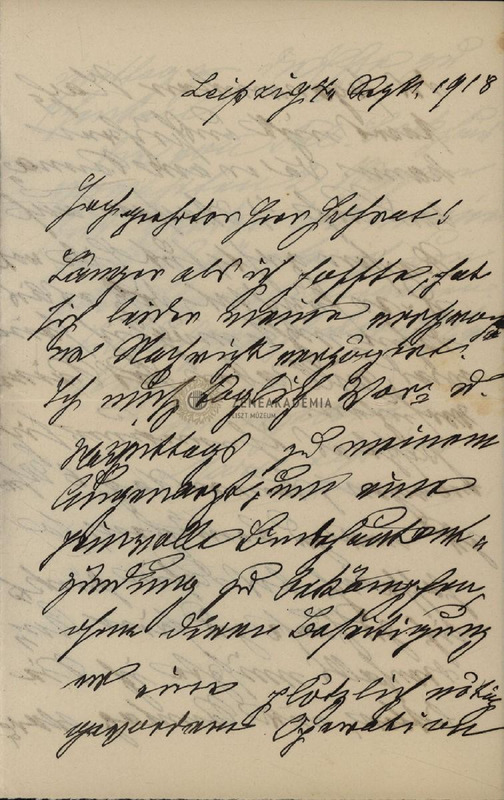 Leipzig 4. Sept. 1918
Hochgeehrter Herr Hofrat!
Länger als ich hoffte, hat
sich leider meine versproche-
ne Nachricht verzögert.
Ich muß täglich Vor- u.
ZENEAKADÉMIA
LISZT MÚZEUM
Nachmittags zu meinem
Augenarzt, um eine
peinvolle Bindehautent-
zündung zu bekämpfen,
ohne deren Beseitigung
er eine plötzlich nötig
gewordene Operation